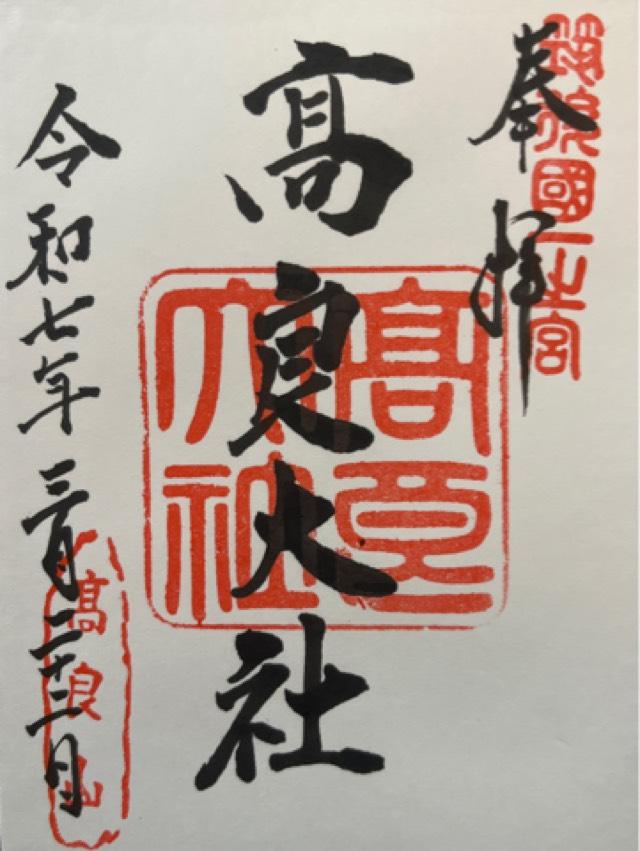 筑後國一之宮
奉拝
髙良大社
髙良大社
令和七年三月二十二日
高良山